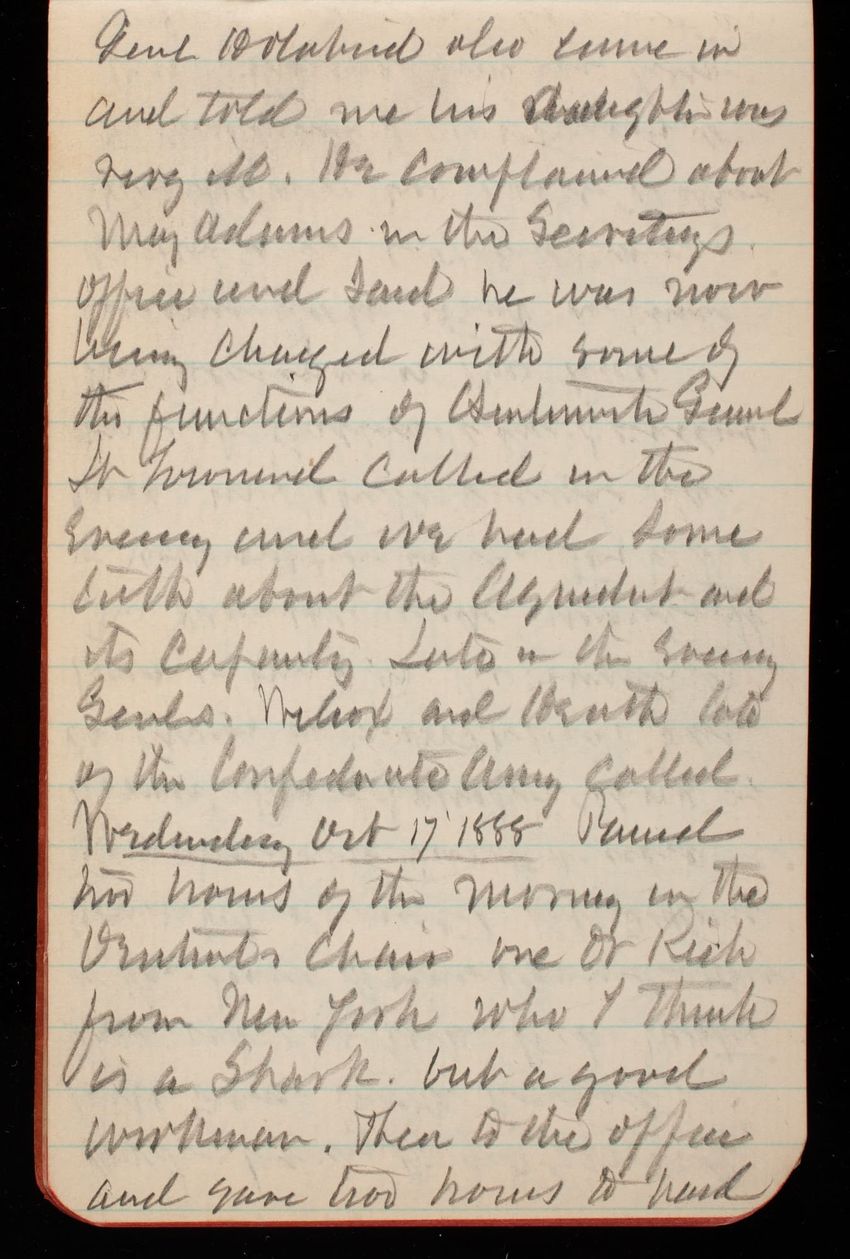 Genl Holabird also came in
and told me his daughter was
very ill. He complained about
Maj Adams in the Secretarys
office and said he was now
being charged with some of
the functions of Genl
Lt Townsend called in the
Evening and we had some
talk about the Aqueduct and
its capacity. Late in the evening
Genls. Wilcox and Heath late
of the Confederate Army called.
Wednesday Oct 17 1888 Passed
two hours of the morning in the
Dentists Chair one Dr Rich
from New York who I think
is a Shark. but a good
workman. Then to the office
and gave two hours to hard